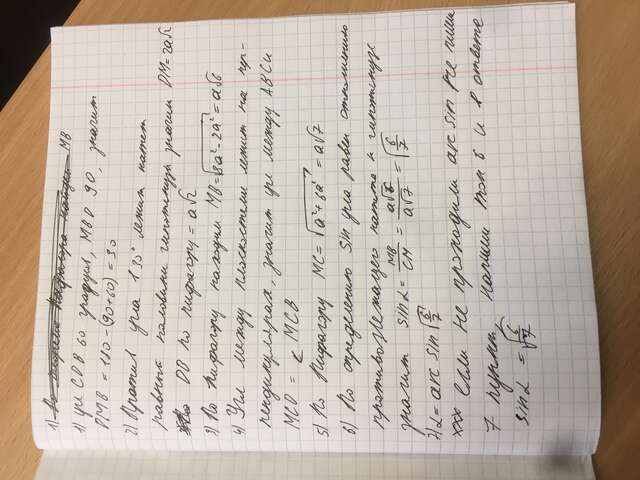 1) По теореме Пифагора найдем MB
1) угл CDB 60 градусов, MBD 90, значит
DMB = 180-(90+60) = 30
2) Против угла 30° лежит катет
равный половины гипотенузы значит DM=2a√2
DB по пифагору = a√2
3) По Пифагору находим MB=√8a²-2a² = a√6
4) Угл между плоскостями лежит на пер-
пендикулярах, значит угл между ABC и
MCD = ∠ MCB
5) По Пифагору MC=√a²+6a² = a√7
6) По определению sin угла равен отношению
противолежащего катета к гипотенузе
значит sin α = MB/CM = a√6/a√7 = √6/7
7) α = arc sin √6/7
если не проходили arc sin не пиши
7 пункт, напиши только 6 и в ответе
sin α = √6/7